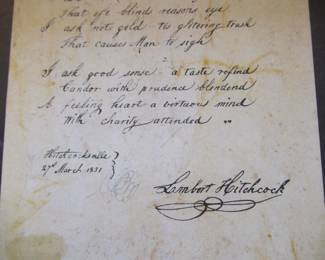 That oft blinds reasons eye
I ask not gold tis glittering trash
That causes Man to sigh
I ask good sense a taste refind
Candor with prudence blendend
A feeling heart a virtuous mind
With charity attended "
Hitchcocksville
27th March 1831
Lambert Hitchcock